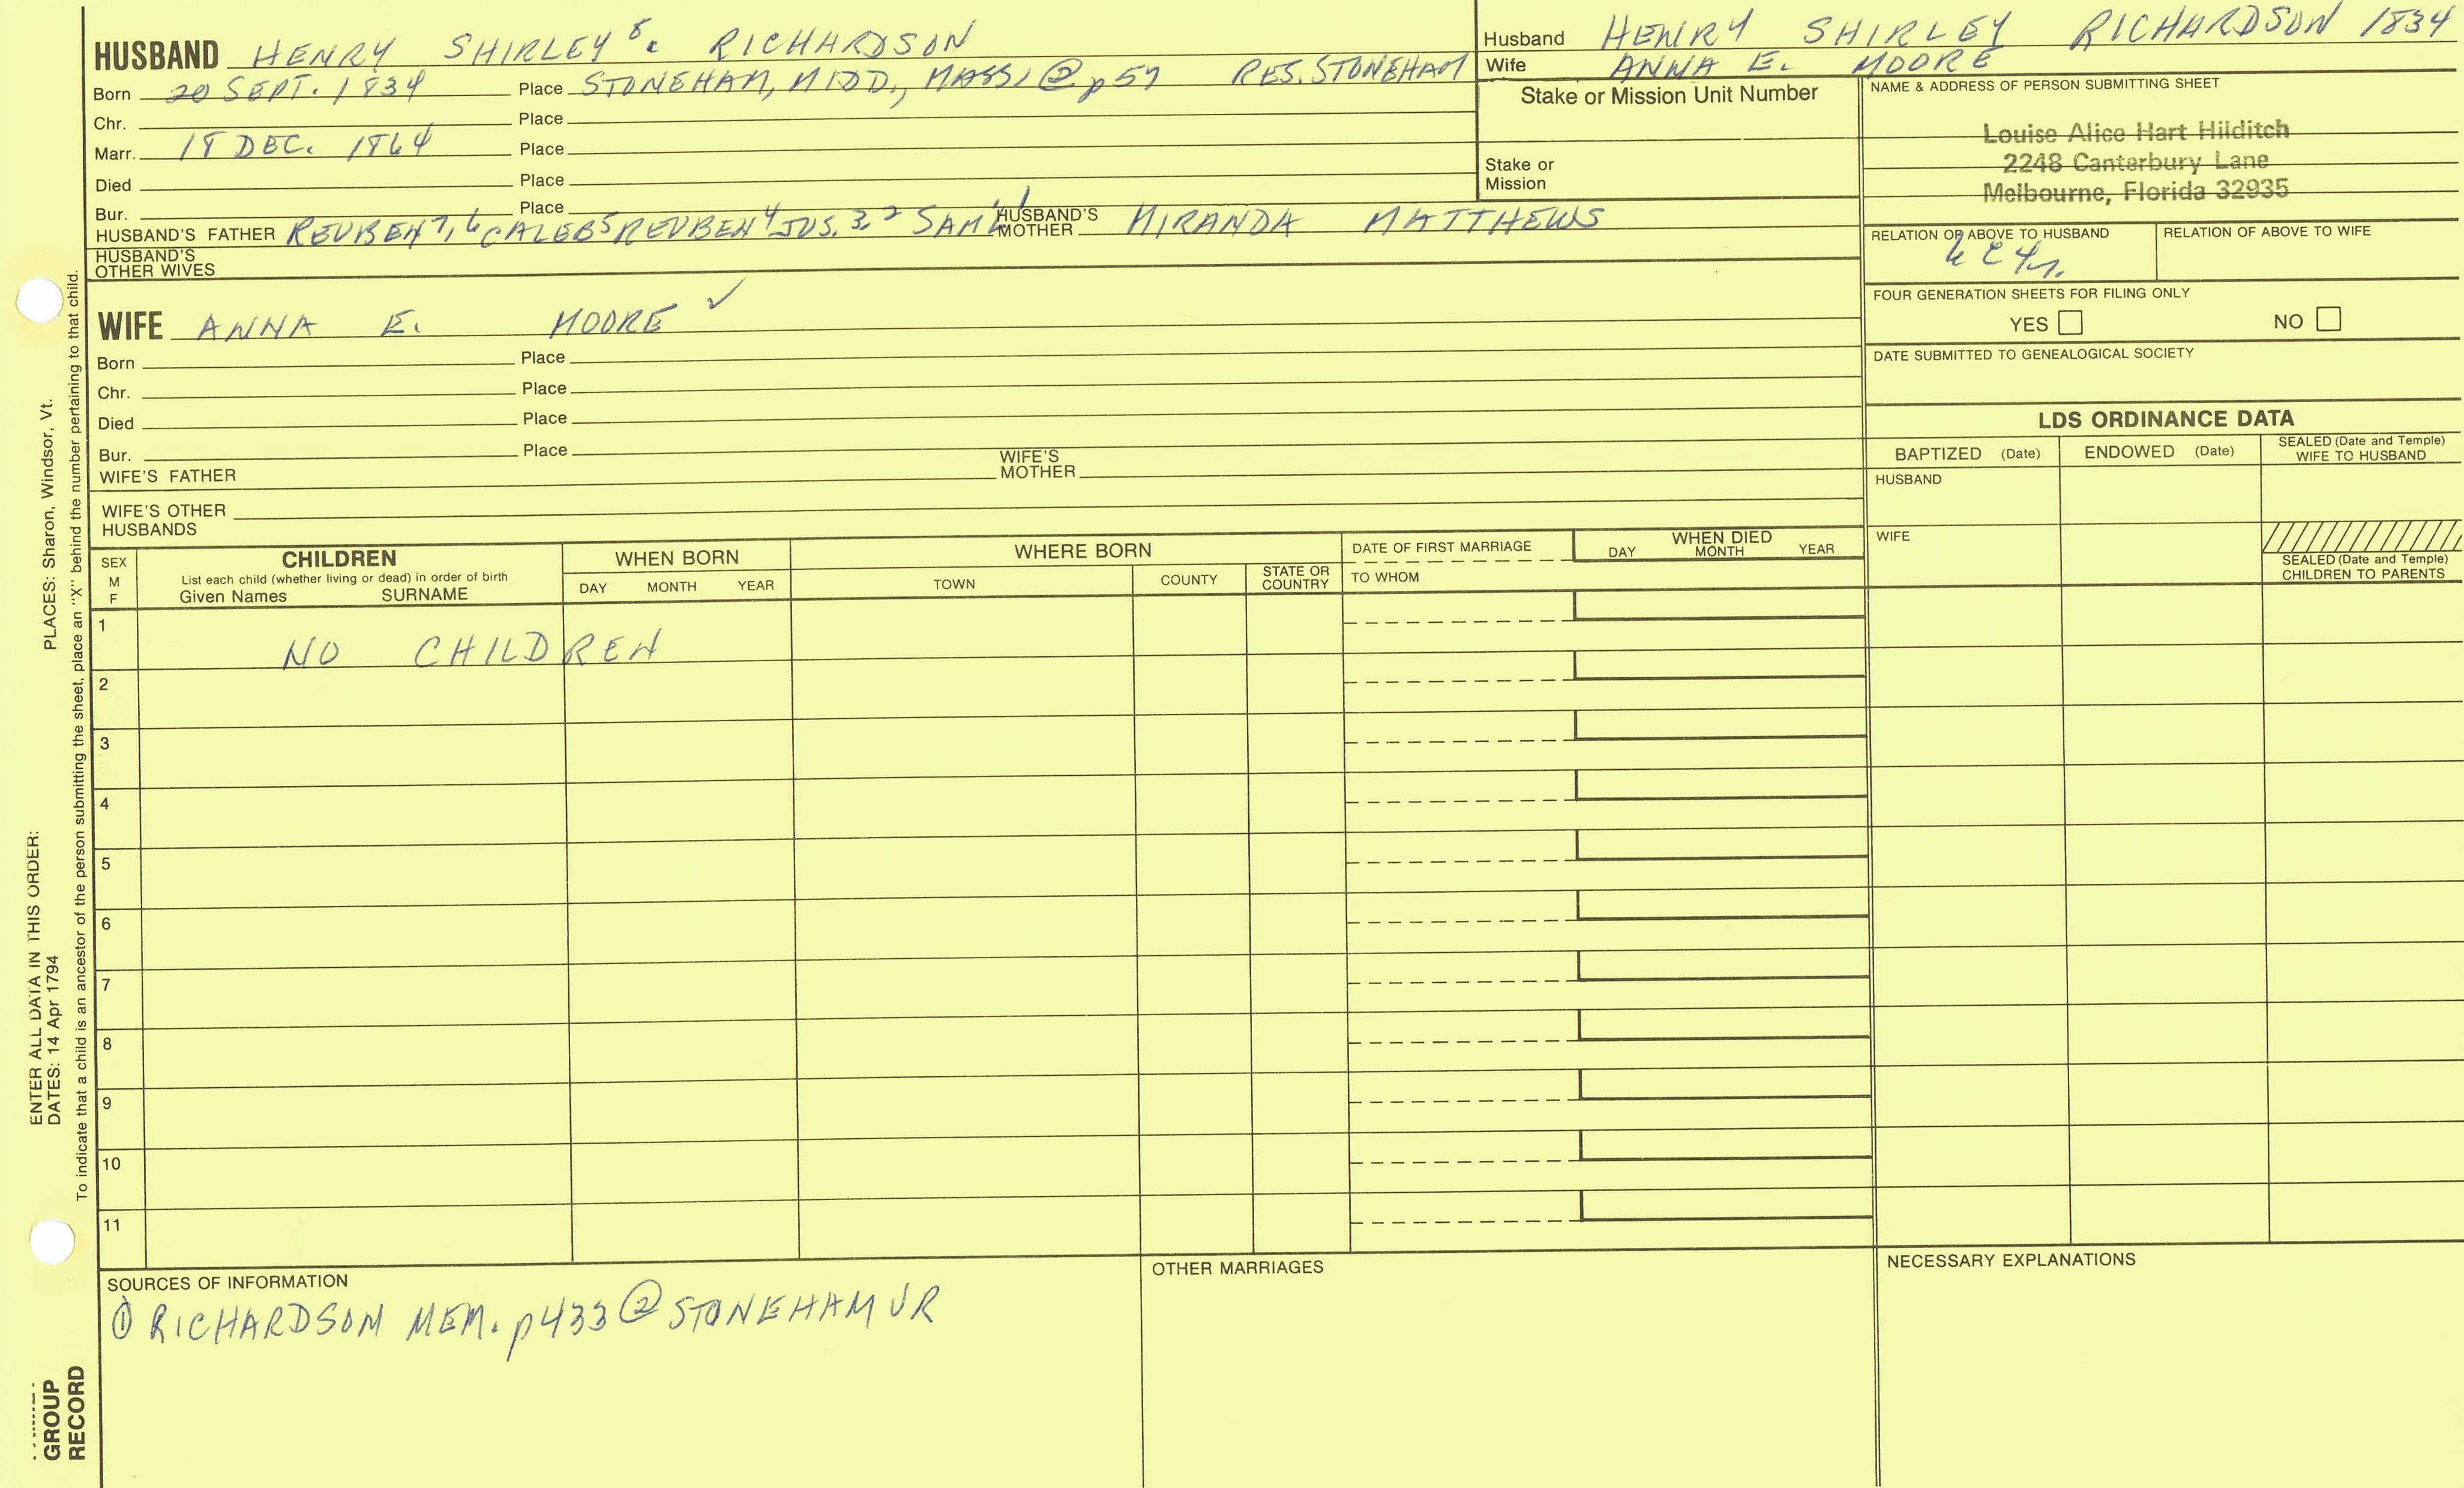 HUSBAND HENRY SHIRLEY 8. RICHARDSON
Born 20 SEPT. 1834 Place STONEHAM, MIDD., MASS, ② p57 RES. STONEHAM
Chr. Place
Marr. 18 DEC. 1864 Place
Died Place
Bur. Place
HUSBAND'S FATHER REUBEN 7, 6 CALEB 5 REUBEN 4 JOS. 3, 2 SAM'L 1 HUSBAND'S MOTHER MIRANDA MATTHEWS
HUSBAND'S OTHER WIVES
Husband HENRY SHIRLEY RICHARDSON 1834
Wife ANNA E. MOORE
Stake or Mission Unit Number
Stake or Mission
NAME & ADDRESS OF PERSON SUBMITTING SHEET
Louise Alice Hart Hilditch
2248 Canterbury Lane
Melbourne, Florida 32935
RELATION OF ABOVE TO HUSBAND RELATION OF ABOVE TO WIFE
FOUR GENERATION SHEETS FOR FILING ONLY
YES NO
DATE SUBMITTED TO GENEALOGICAL SOCIETY
WIFE ANNA E. MOORE ✓
Born Place
Chr. Place
Died Place
Bur. Place
WIFE'S FATHER WIFE'S MOTHER
WIFE'S OTHER HUSBANDS
LDS ORDINANCE DATA
BAPTIZED (Date) ENDOWED (Date) SEALED (Date and Temple) WIFE TO HUSBAND
HUSBAND
WIFE
SEALED (Date and Temple) CHILDREN TO PARENTS
SEX M F
CHILDREN
List each child (whether living or dead) in order of birth
Given Names SURNAME
WHEN BORN
DAY MONTH YEAR
WHERE BORN
TOWN COUNTY STATE OR COUNTRY
DATE OF FIRST MARRIAGE
TO WHOM
WHEN DIED
DAY MONTH YEAR
1 NO CHILDREN
2
3
4
5
6
7
8
9
10
11
SOURCES OF INFORMATION
① RICHARDSON MEM. p433 ② STONEHAM VR
OTHER MARRIAGES
NECESSARY EXPLANATIONS
ENTER ALL DATA IN THIS ORDER:
DATES: 14 Apr 1794 PLACES: Sharon, Windsor, Vt.
To indicate that a child is an ancestor of the person submitting the sheet, place an "X" behind the number pertaining to that child.
GROUP
RECORD